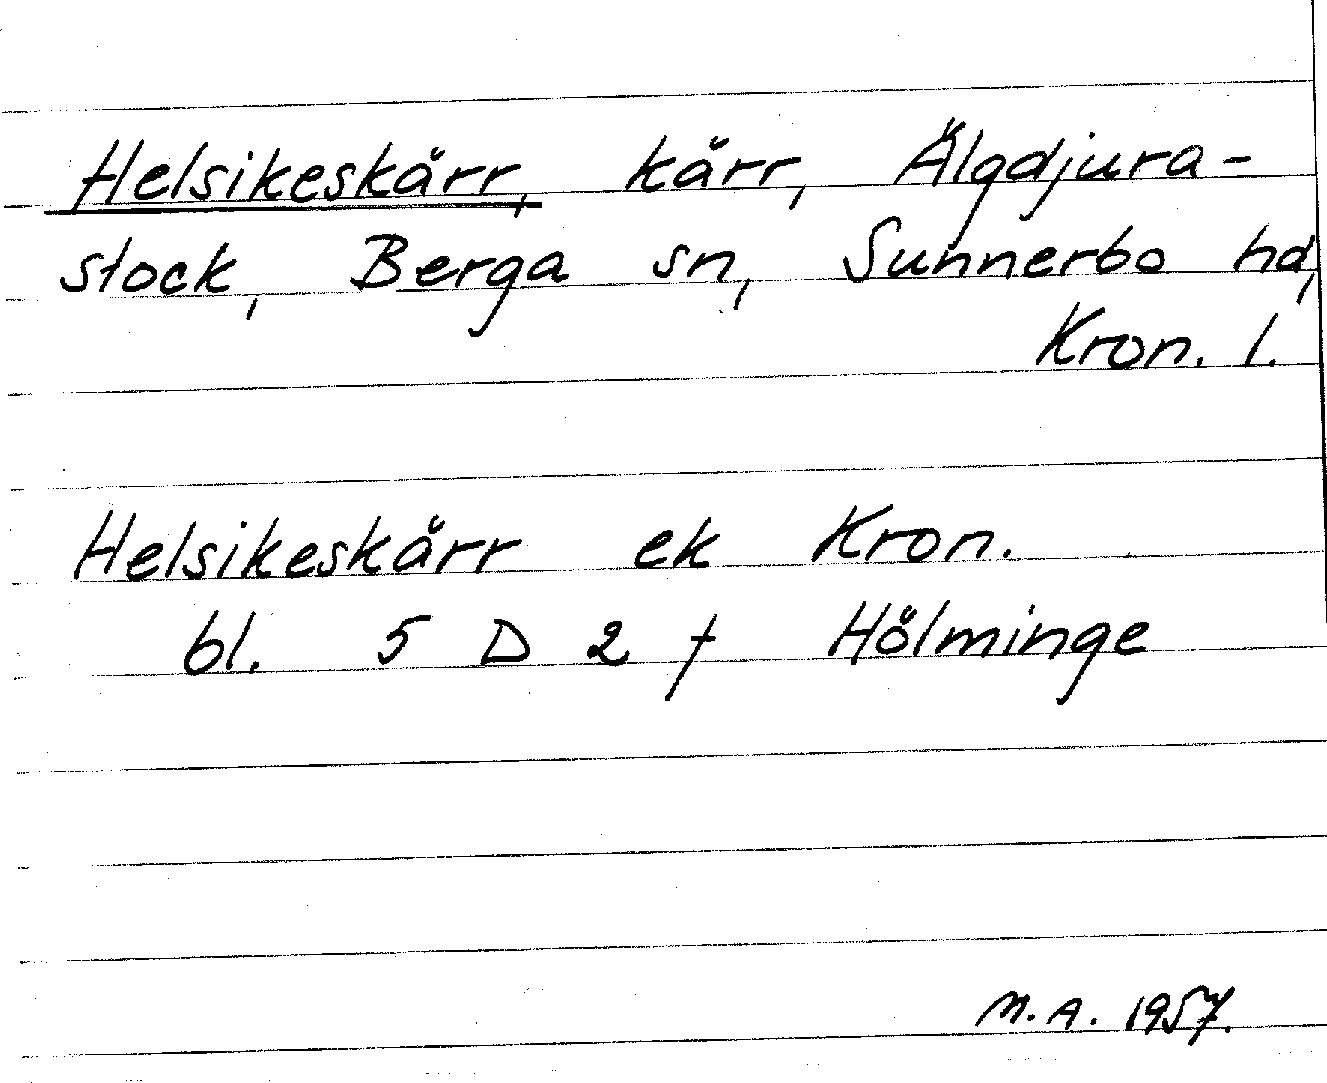 Helsikeskärr, kärr, Älgdjura-
stock, Berga sn, Sunnerbo hd,
Kron. l.
Helsikeskärr ek Kron.
bl. 5 D 2 f Hölminge
M.A. 1957.